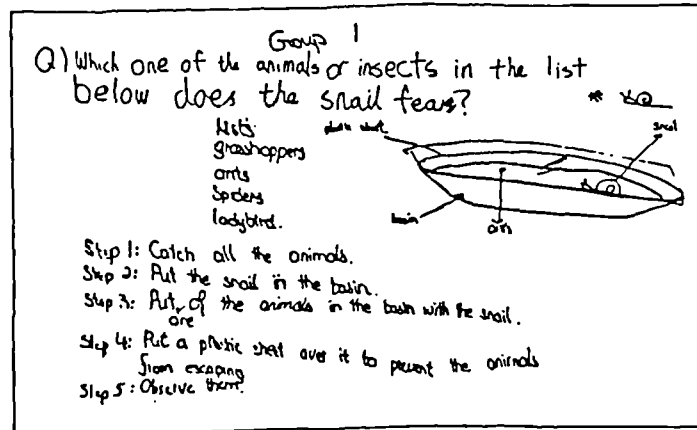 Group 1
Q) Which one of the animals or insects in the list
below does the snail fears?
List:
grasshoppers
ants
Spiders
ladybird.
plastic sheet
snail
basin
air
Step 1: Catch all the animals.
Step 2: Put the snail in the basin.
Step 3: Put one of the animals in the basin with the snail.
Step 4: Put a plastic sheet over it to prevent the animals
from escaping
Step 5: Observe them.